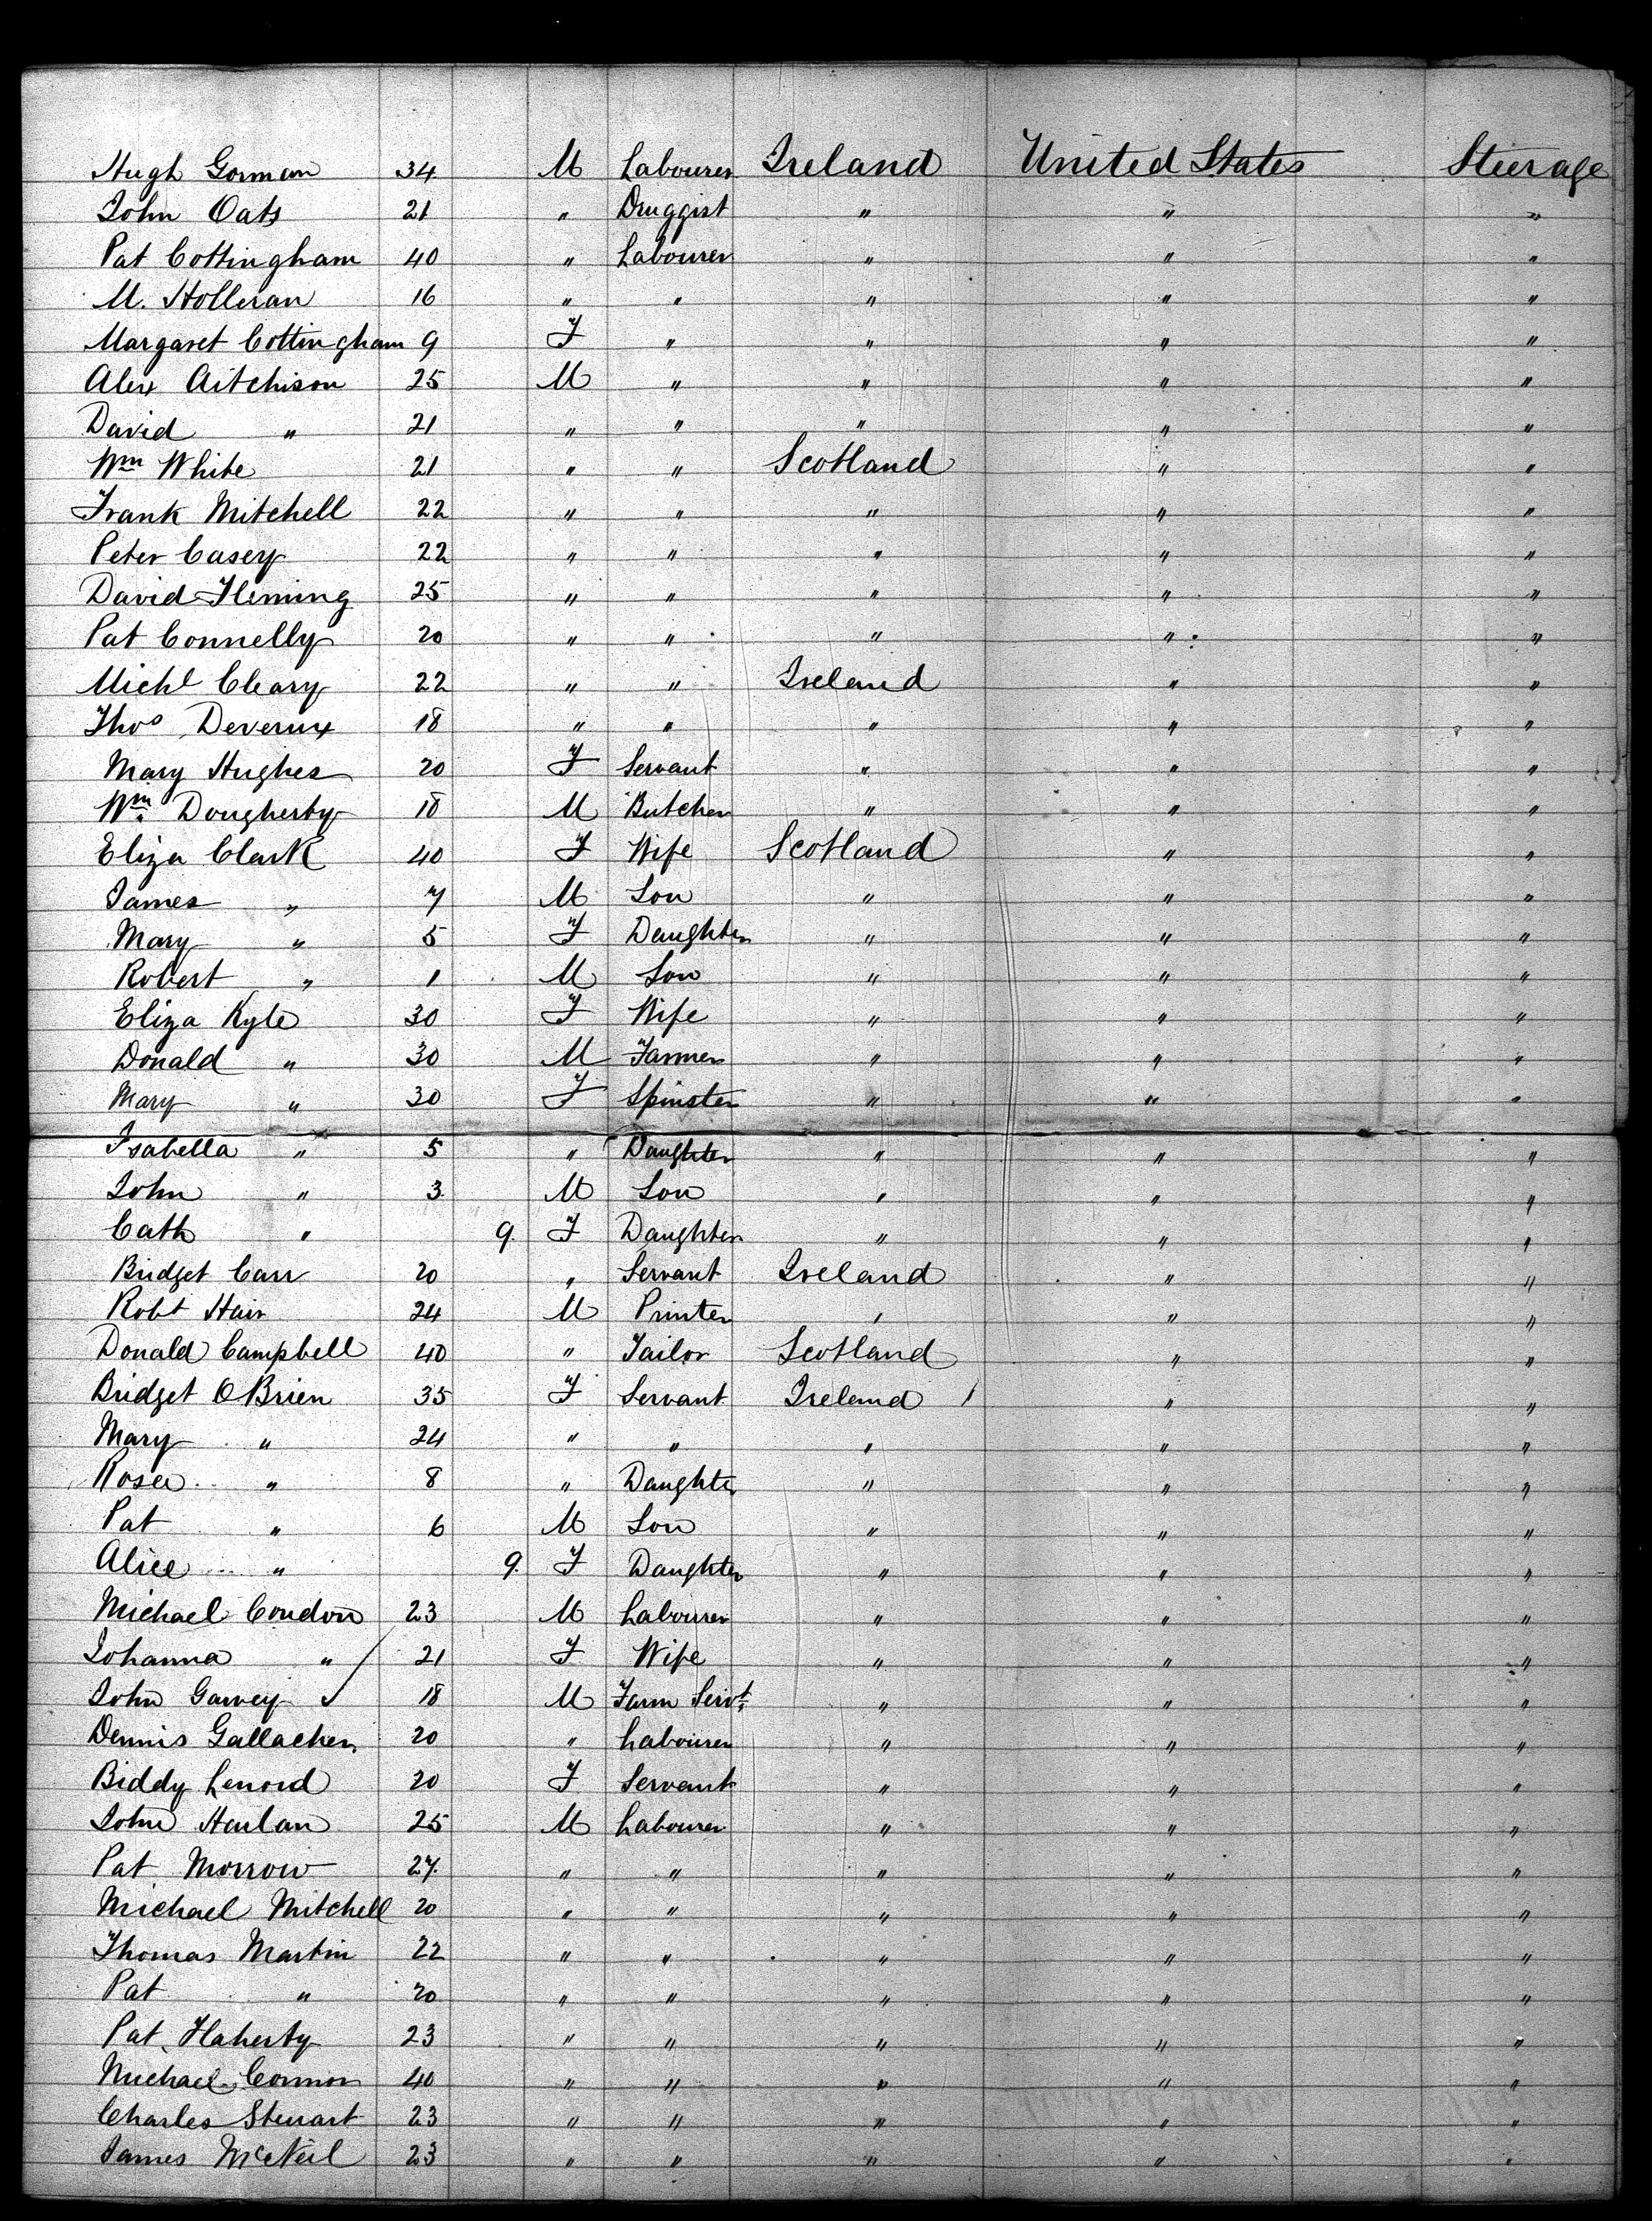 Hugh Gorman 34 M Labourer Ireland United States Steerage
John Oats 21 " Druggist " " "
Pat Cottingham 40 " Labourer " " "
M. Holleran 16 " " " " "
Margaret Cottingham 9 F " " " "
Alex Aitchison 25 M " " " "
David " 21 " " " " "
Wm White 21 " " Scotland " "
Frank Mitchell 22 " " " " "
Peter Casey 22 " " " " "
David Fleming 25 " " " " "
Pat Connelly 20 " " " " "
Michl Cleary 22 " " Ireland " "
Thos Deverux 18 " " " " "
Mary Hughes 20 F Servant " " "
Wm Dougherty 18 M Butcher " " "
Eliza Clark 40 F Wife Scotland " "
James " 7 M Son " " "
Mary " 5 F Daughter " " "
Robert " 1 M Son " " "
Eliza Kyle 30 F Wife " " "
Donald " 30 M Farmer " " "
Mary " 30 F Spinster " " "
Isabella " 5 " Daughter " " "
John " 3 M Son " " "
Cath " 9 F Daughter " " "
Bridget Carr 20 " Servant Ireland " "
Robt Hair 24 M Printer " " "
Donald Campbell 40 " Tailor Scotland " "
Bridget O'Brien 35 F Servant Ireland " "
Mary " 24 " " " " "
Rosa " 8 " Daughter " " "
Pat " 6 M Son " " "
Alice " 9 F Daughter " " "
Michael Condon 23 M Labourer " " "
Johanna " 21 F Wife " " "
John Garvey 18 M Farm Servt " " "
Dennis Gallacher 20 " Labourer " " "
Biddy Lenord 20 F Servant " " "
John Harlan 25 M Labourer " " "
Pat Morrow 27 " " " " "
Michael Mitchell 20 " " " " "
Thomas Martin 22 " " " " "
Pat " 20 " " " " "
Pat Flaherty 23 " " " " "
Michael Connor 40 " " " " "
Charles Stewart 23 " " " " "
James McNeil 23 " " " " "